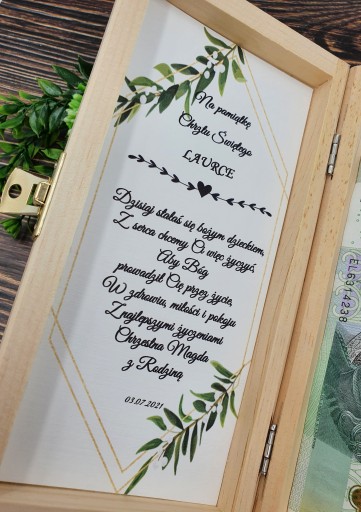 Na pamiątkę
Chrztu Świętego
LAURCE
Dzisiaj stałaś się bożym dzieckiem,
Z serca chcemy Ci więc życzyć
Aby Bóg
prowadził Cię przez życie,
W zdrowiu, miłości i pokoju
Z najlepszymi życzeniami
Chrzestna Magda
z Rodziną
03.07.2021
EL6314238